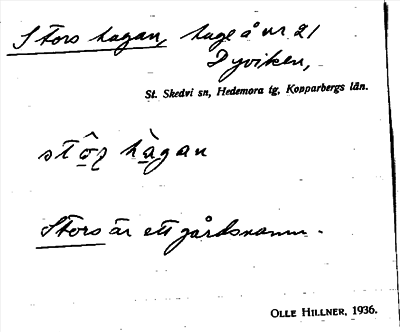 Stors hagan, hage å nr 21
Dyviken,
St. Skedvi sn, Hedemora tg, Kopparbergs län.
stô̱ꝛ hà̱gan
Stors är ett gårdsnamn.
OLLE HILLNER, 1936.